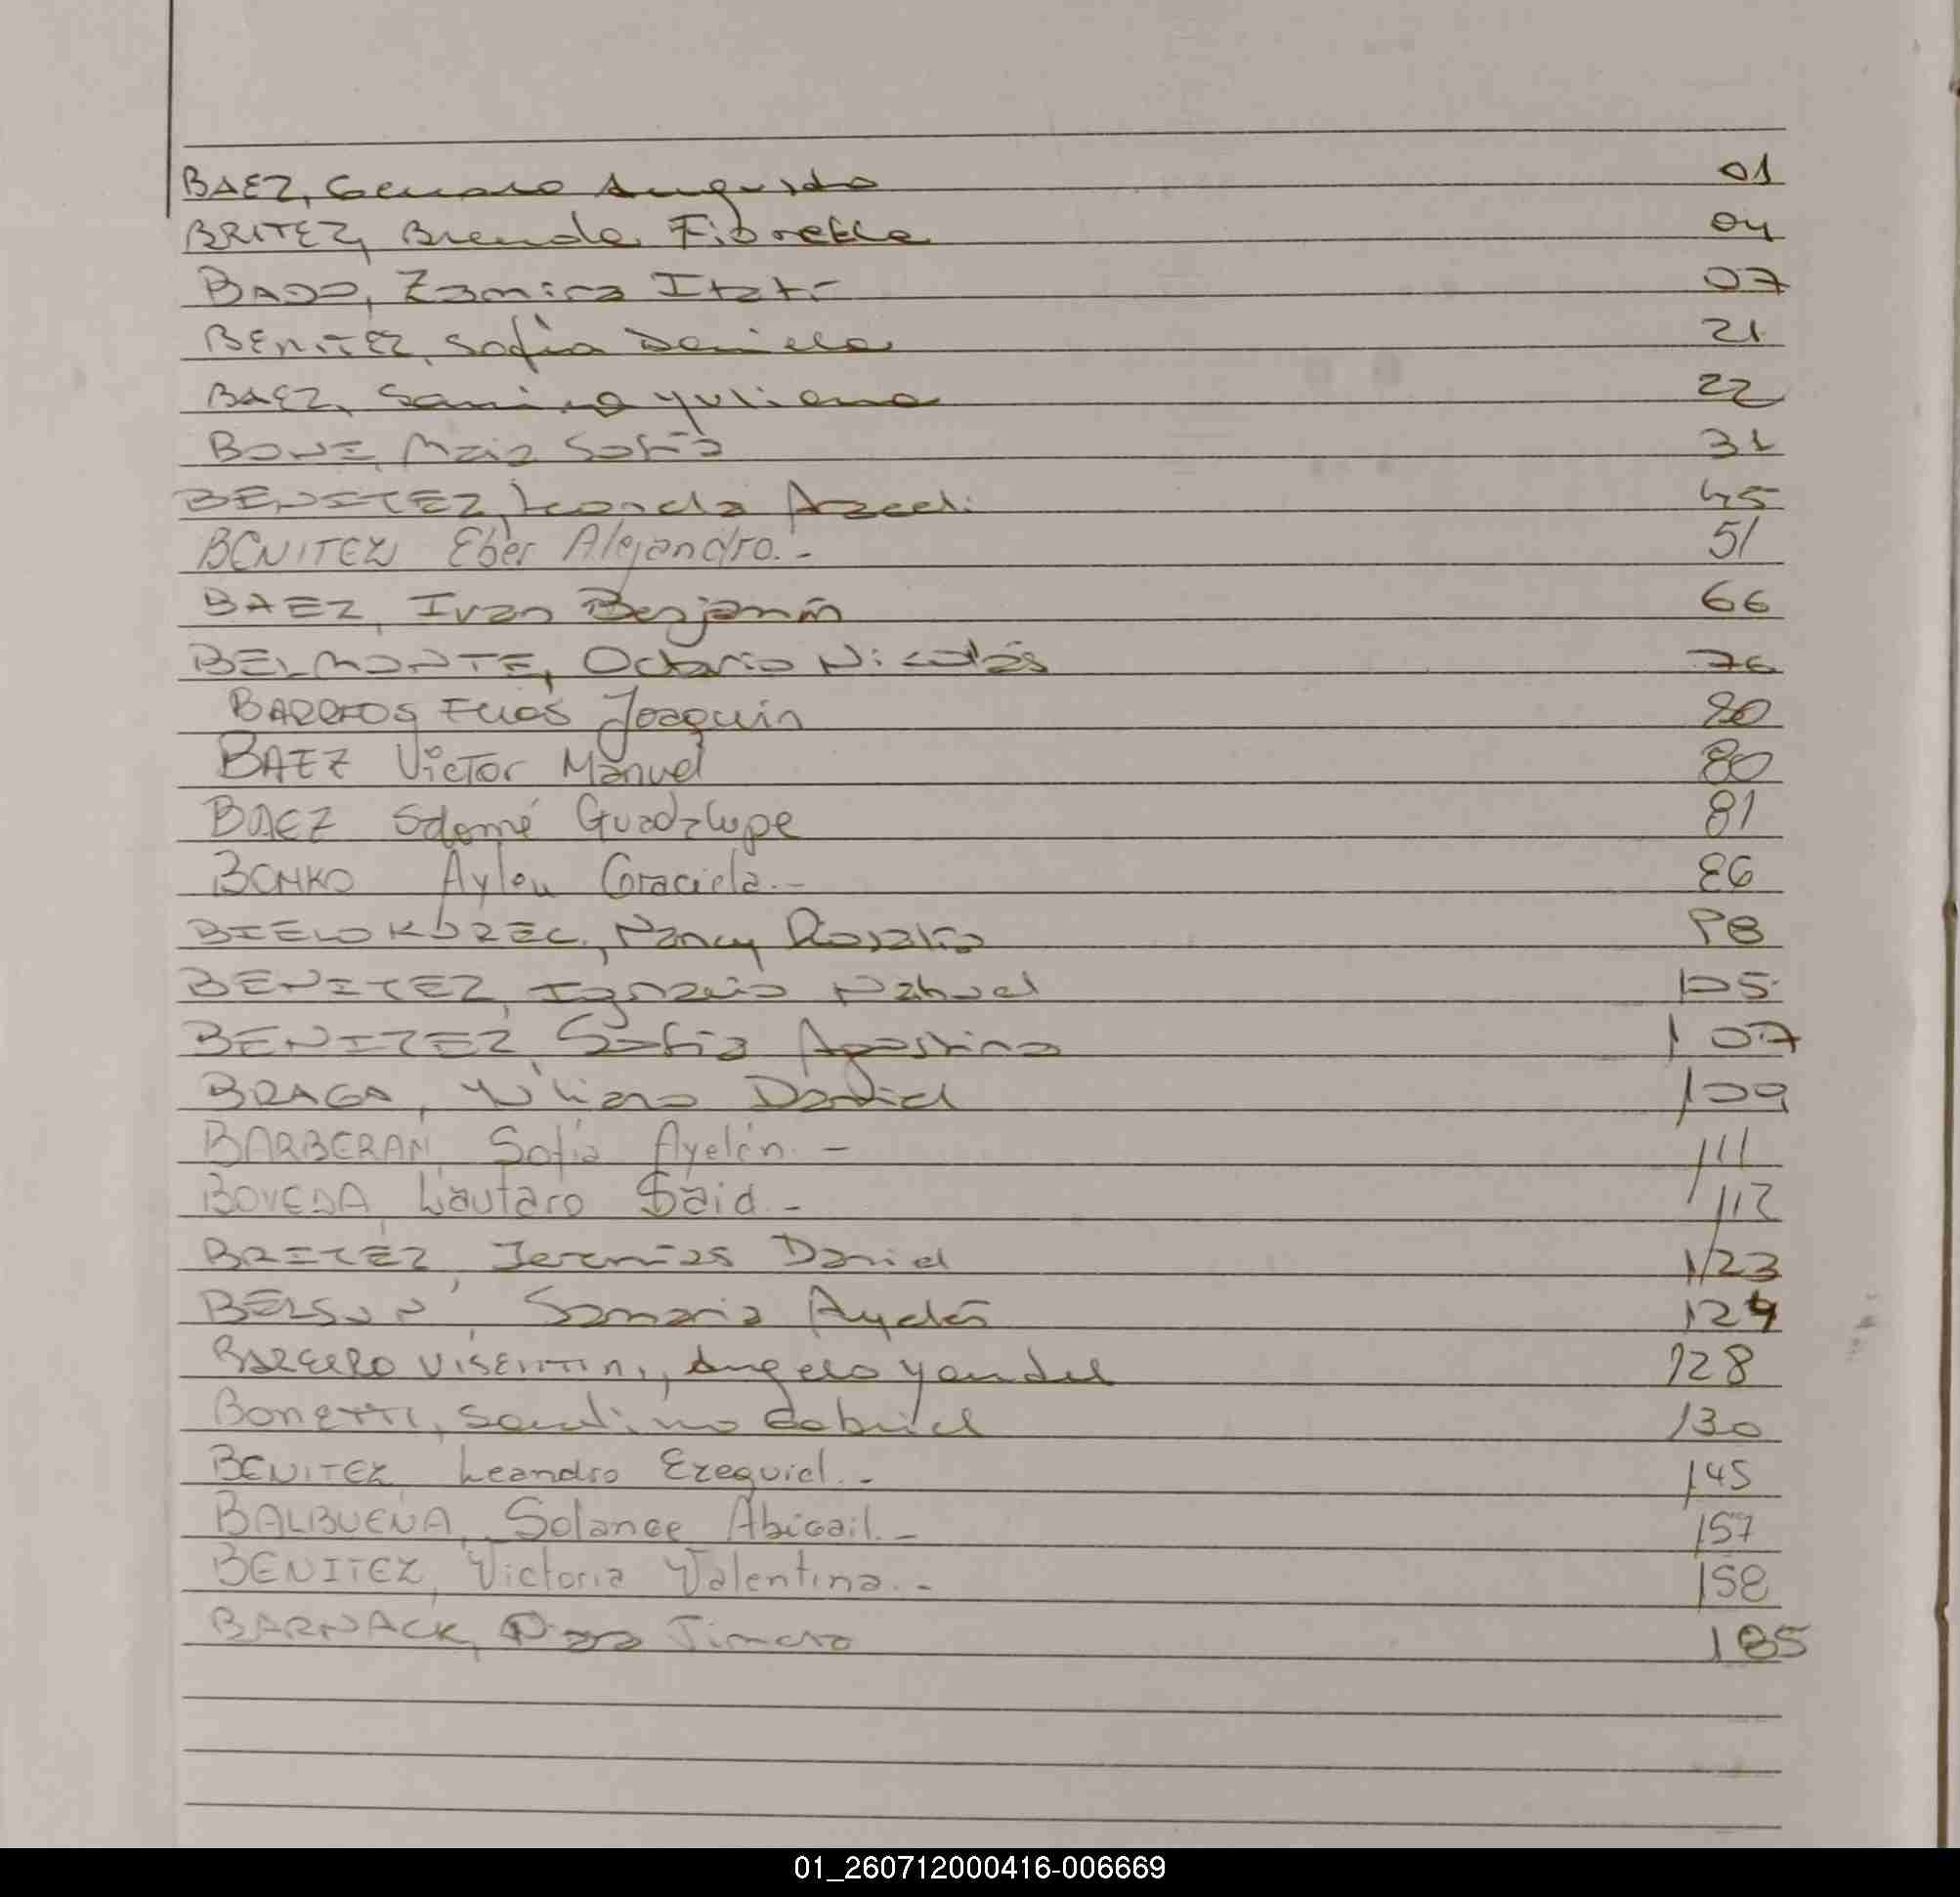 BAEZ, Genaro Augusto 01
BRITEZ, Brenda Fiorella 04
BADO, Zamira Itatí 07
BENITEZ, Sofía Daniela 21
BAEZ, Samira Yuliana 22
BONE, Maia Sofía 31
BENITEZ, Araceli 45
BENITEZ Eber Alejandro.- 51
BAEZ, Ivan Benjamín 66
BELMONTE, Octavio Nicolás 76
BARRIOS Elías Joaquin 80
BAEZ Víctor Manuel 80
BAEZ Salomé Guadalupe 81
Aylen Graciela.- 86
BIELOKOREC, Nancy Rosalía 98
BENITEZ, Ignacio Nahuel 105
BENITEZ, Sofía Agostina 107
BRAGA, Yuliano Daniel 109
BARBERAN, Sofía Ayelén.- 111
BOVEDA, Lautaro Said.- 112
BRITEZ, Jeremías Daniel 123
Samaria Ayelén 124
VISENTIN, Angelo Yandel 128
BONETTI, Santino Gabriel 130
BENITEZ, Leandro Ezequiel.- 145
BALBUENA, Solange Abigail.- 157
BENITEZ, Victoria Valentina.- 158
BARNACK, Jimena 185
01_260712000416-006669